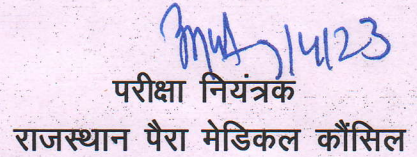 /4/23
परीक्षा नियंत्रक
राजस्थान पैरा मेडिकल कौंसिल